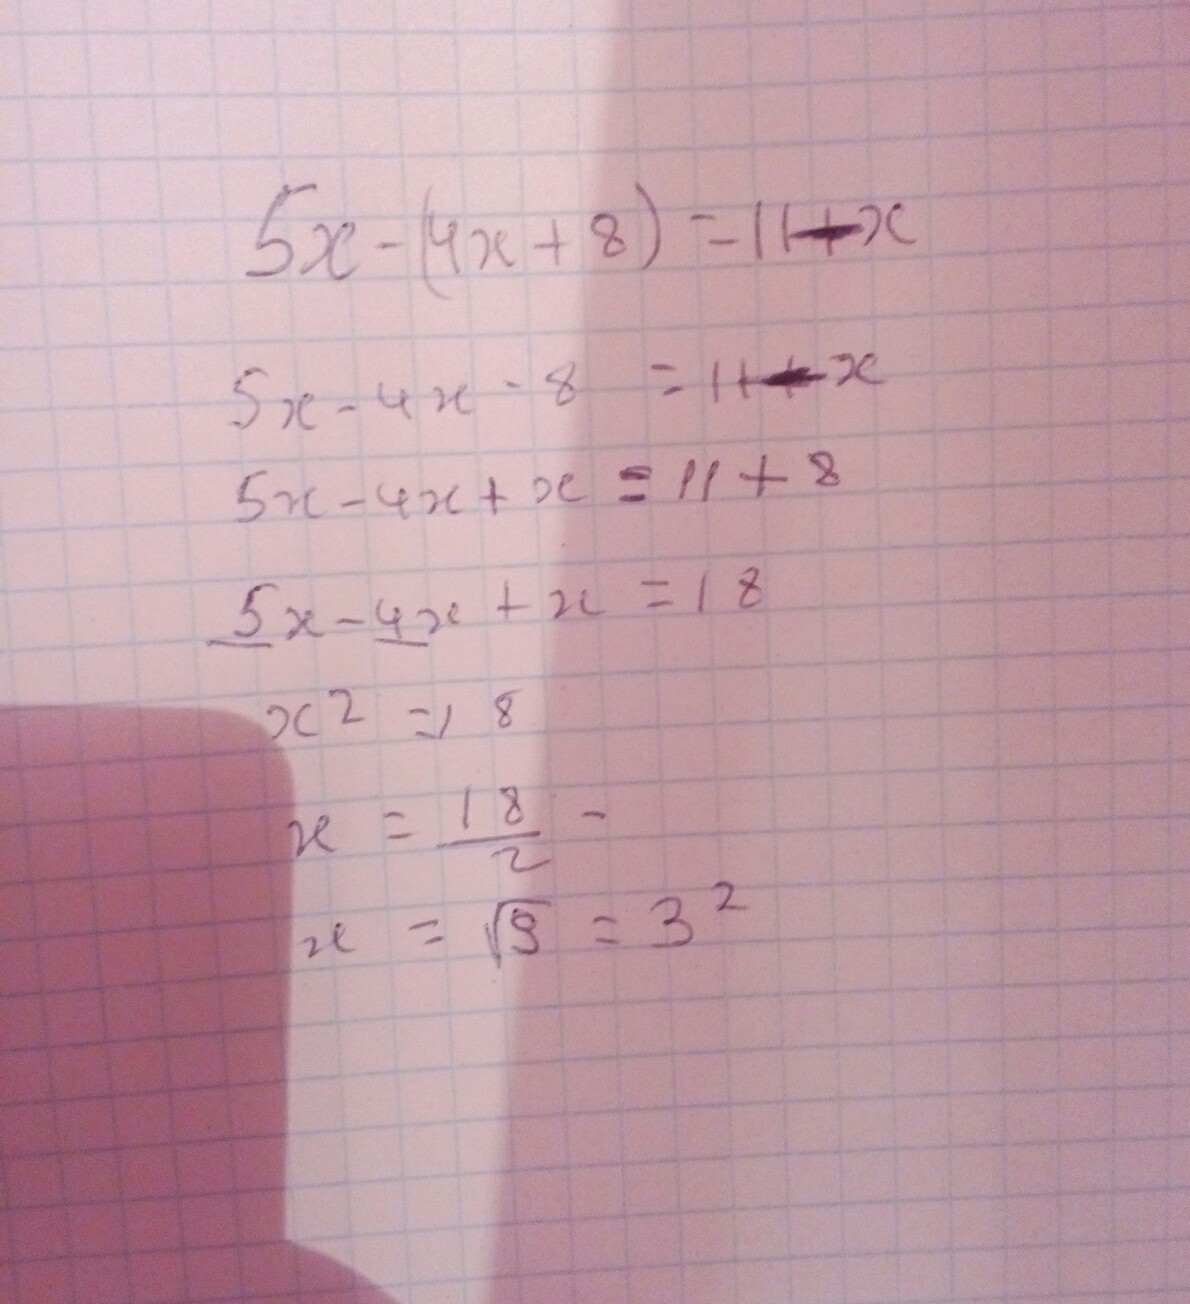 5x - (4x + 8) = 11 - x
5x - 4x - 8 = 11 - x
5x - 4x + x = 11 + 8
5x - 4x + x = 18
x² = 18
x = 18/2 -
x = √9 = 3²